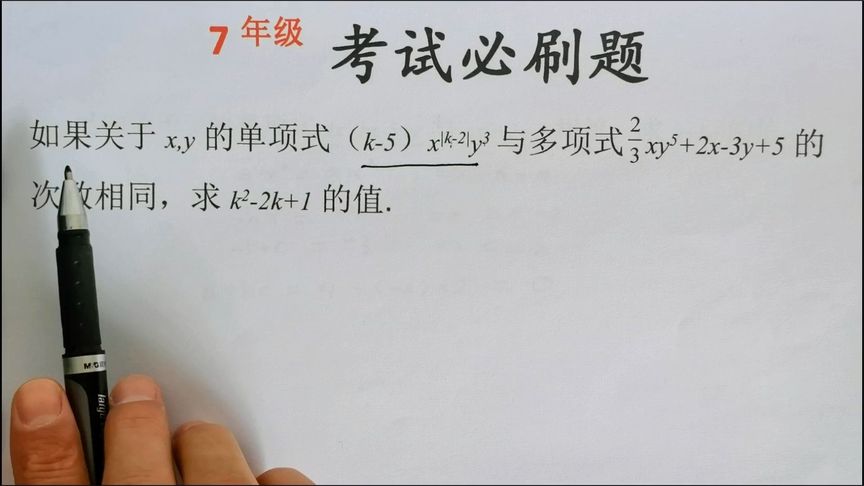 7 年级 考试必刷题
如果关于 x,y 的单项式（k-5）x|k-2|y³ 与多项式2/3xy⁵+2x-3y+5 的
次数相同，求 k²-2k+1 的值.
M&G